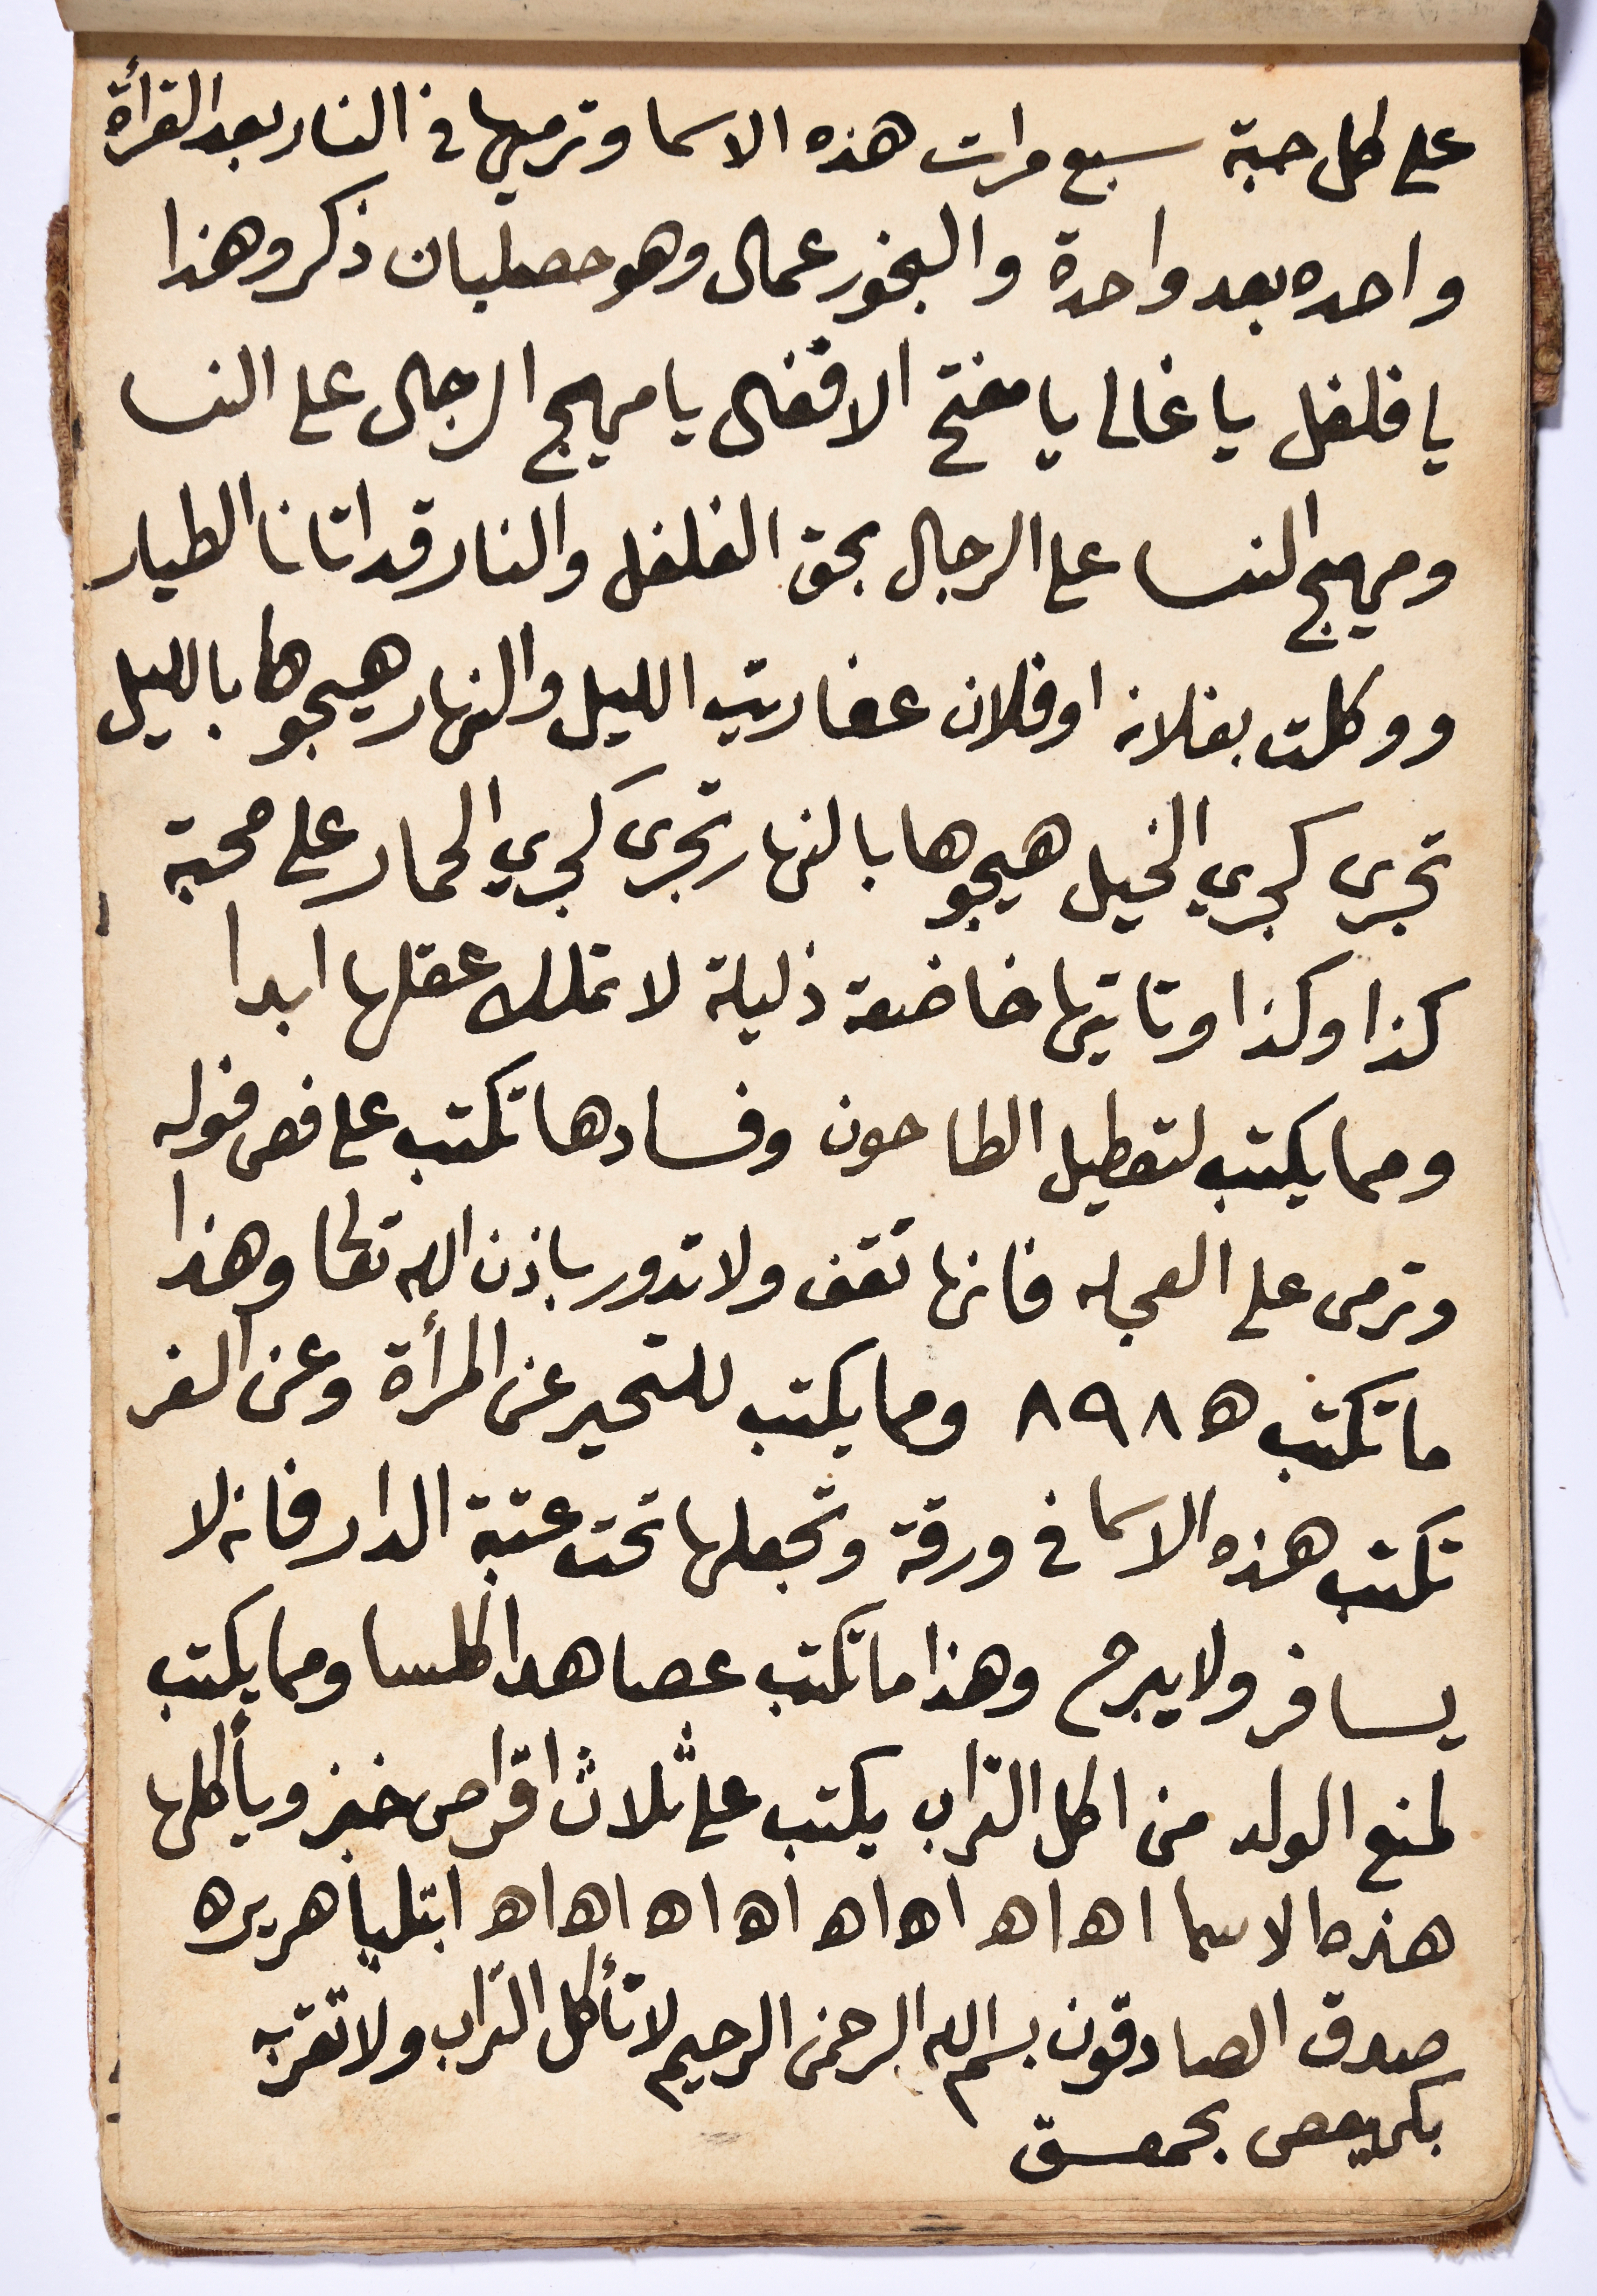 على كل حبة سبع مرات هذه الاسما وترميها في النار بعد القرأة
واحده بعد واحدة والبخور عمال وهو حصلبان ذكر وهذا
يا فلفل يا غالى يا مفتح الاقفال يا مهيج الرجال على النسا
ومهيج النسا على الرجال بحق الفلفل والنار قد اتانا الطيار
ووكلت بفلانه او فلان عفاريت الليل والنهار هيجوها بالليل
تجرى كجري الخيل هيجوها بالنهار تجرى كجري الحمار على محبة
كذا وكذا وتاتيها خاضعة ذليلة لا تملك عقلها ابدا
ومما يكتب لتعطيل الطاحون وفسادها تكتب على فص فوله
وترمى على العجله فانها تقف ولا تدور باذن الله تعالى وهذا
ما تكتب ه ٨٩٨ ومما يكتب للتحير عن المرأة وعن السفر
تكتب هذه الاسما في ورقة وتجعلها تحت عتبة الدار فانه لا
يسافر ولا يبرح وهذا ما تكتب عصا هدا كلمسا ومما يكتب
لمنع الولد من اكل التراب يكتب على ثلاث اقراص خبز ويأكلها
هذه الاسما اه اه اه اه اه اه اه اه ابتليا هريره
صدق الصادقون بسم الله الرحمن الرحيم لا تأكل التراب ولا تقربه
بكهيعص بحمعسق